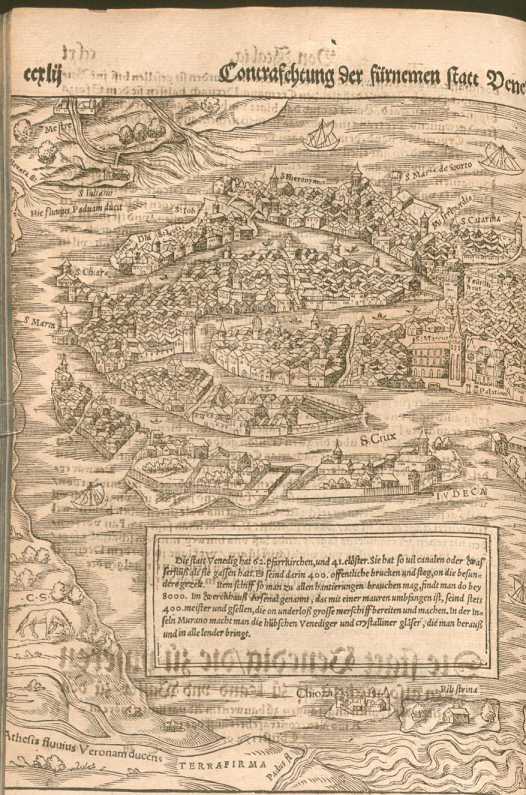 ccxlij
Contrafehtung der fürnemen statt Vene
S Iuliano
Hic fluuius Paduam ducit
S Iob
S Hieronymo
S Maria de
S Catarina
S Chiara
S Maria
S Marcus
Palatium
S. Crux
IVDECA
Die statt Venedig hat 62. pfarrkirchen, und 41. clöster. Sie hat so vil canalen oder
400. offentliche brucken und steg, on die besun/
Item schiff so man zu allen hantierungen brauchen mag, findt man do bey
8000. Im Werckhauß Arsenal genannt, das mit einer mauren umbfingen ist, seind stett
400. meister und gsellen, die on underloß grosse merschiff bereiten und machen. In der in/
seln Murano macht man die hübschen Venediger und crystalliner gläser, die man herauß
und in alle lender bringt.
C.S.
Chioza
Pilistrina
Athesis fluuius Veronam ducens
TERRA FIRMA
Padus fl